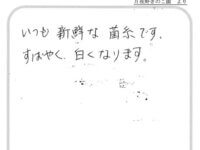 いつも 新鮮な 菌糸です。
すばやく、白くなります。